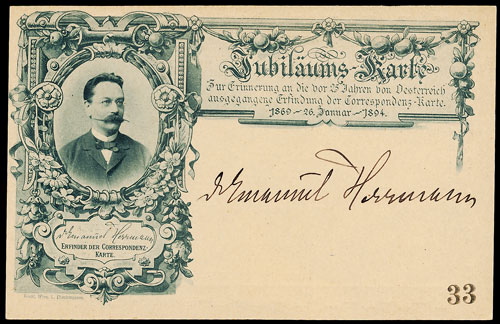 Jubiläums-Karte
Zur Erinnerung an die vor 25 Jahren von Oesterreich
ausgegangene Erfindung der Correspondenz-Karte.
1869 – 26. Januar – 1894.
Dr Emanuel Herrmann
Dr Emanuel Herrmann
ERFINDER DER CORRESPONDENZ-
KARTE.
33